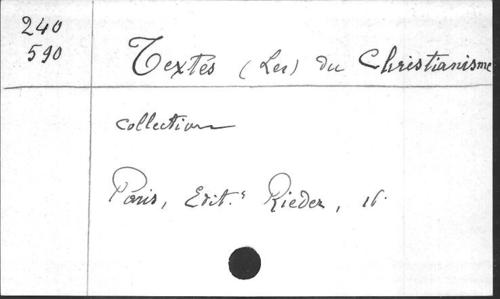 240
590
Textes (Les) du Christianisme
collection
Paris, Edit.s Rieder, 16.